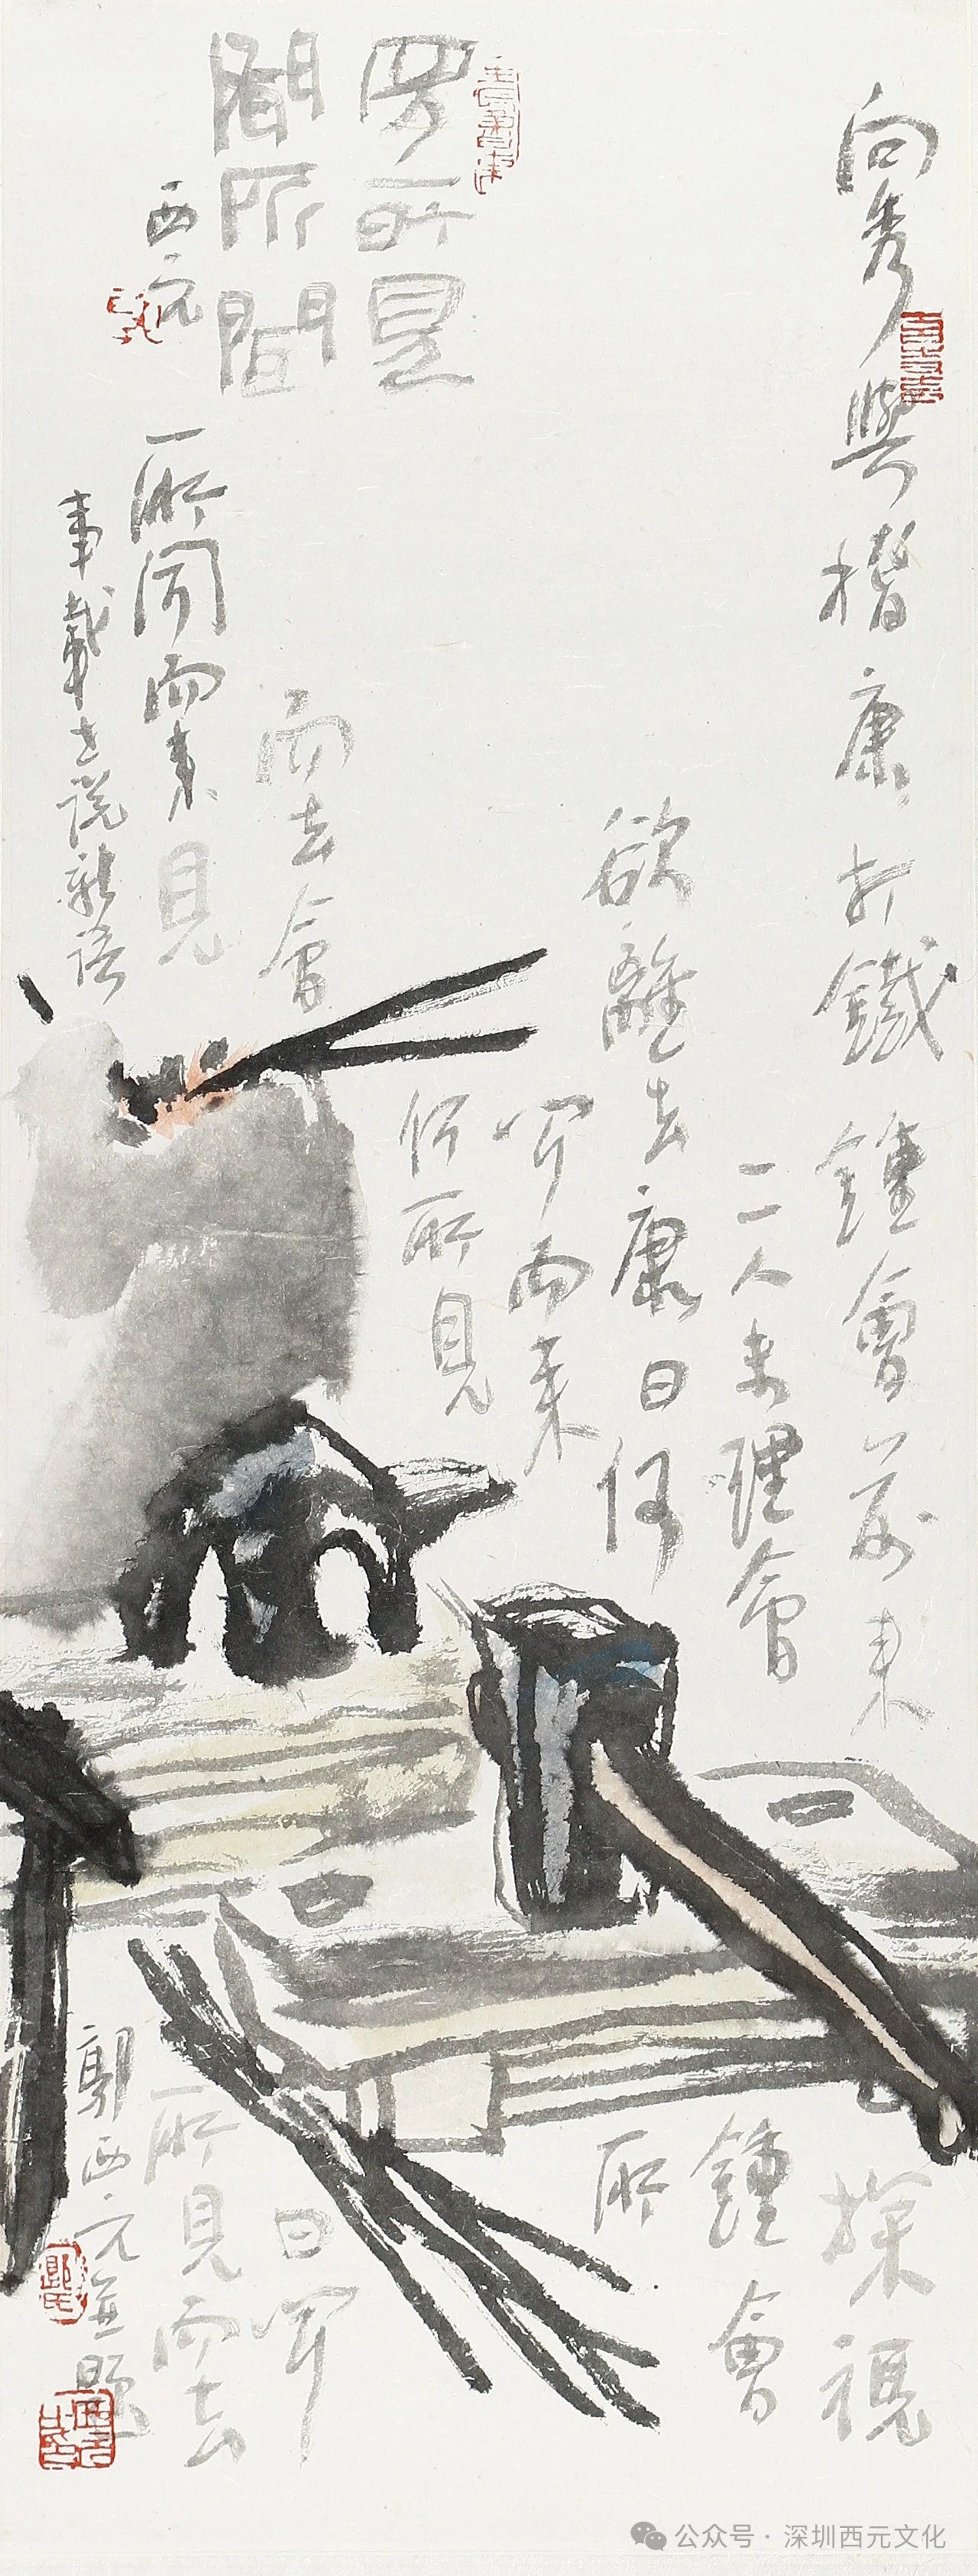 所見
聞所聞
西元
向秀與嵇康打鐵鍾會前来探視
二人未理會鍾會
欲離去康曰何所
聞而来
何所見
而去會曰聞
所聞而来見所見而去
事載世説新語郭西元並題
公众号·深圳西元文化